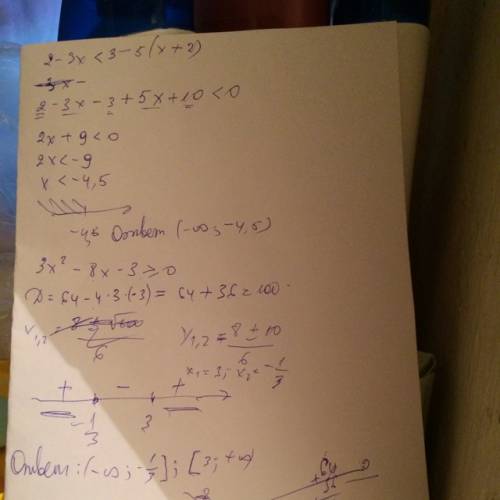 2-3x<3-5(x+2)
2-3x-3+5x+10<0
2x+9<0
2x<-9
x<-4,5
-4,5 Ответ (-∞; -4,5)
3x²-8x-3≥0
D=64-4·3·(-3)=64+36=100
x1,2=(8±10)/6
x1=3; x2=-1/3
+ - +
-1/3 3
Ответ: (-∞; -1/3]; [3; +∞)